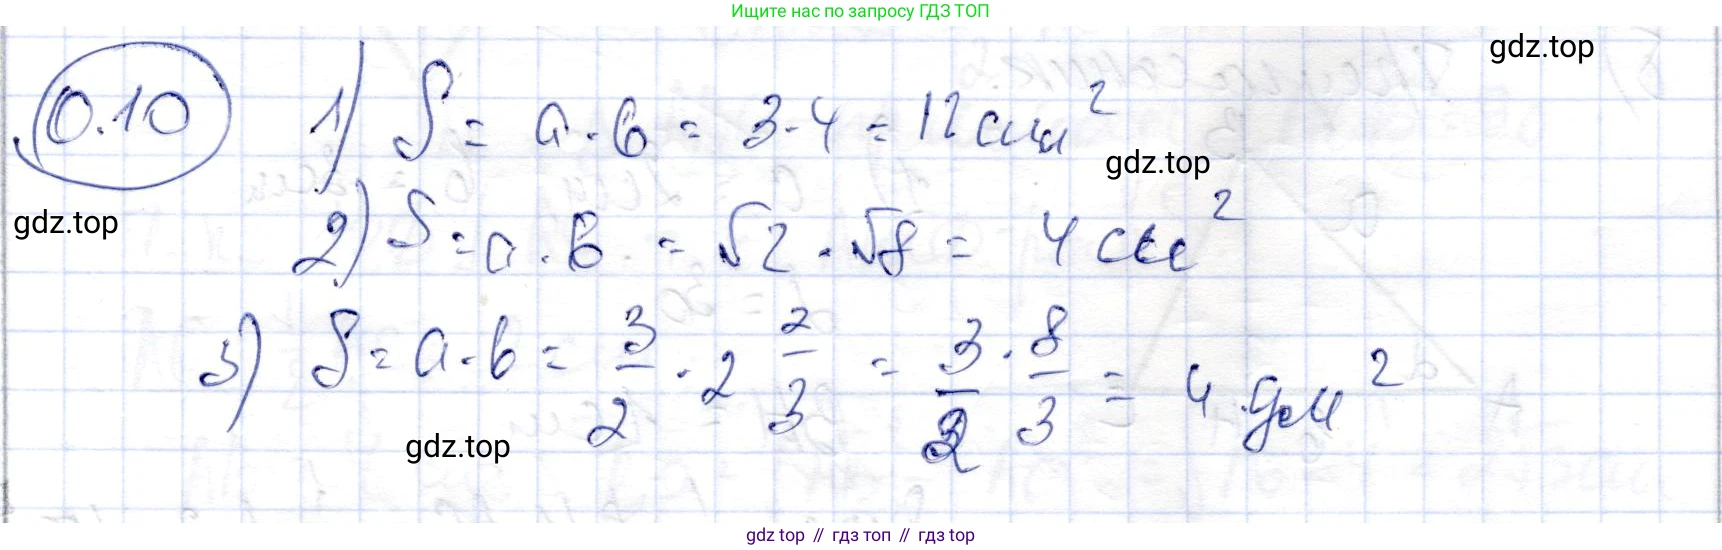 Ищите нас по запросу ГДЗ ТОП
gdz.top
0.10 1) S = a · b = 3 · 4 = 12 см²
gdz.top
gdz.top
2) S = a · b = √2 · √8 = 4 см²
3) S = a · b = 3/2 · 2 2/3 = 3/2 · 8/3 = 4 дм²
gdz.top
gdz top // гдз топ // гдз top